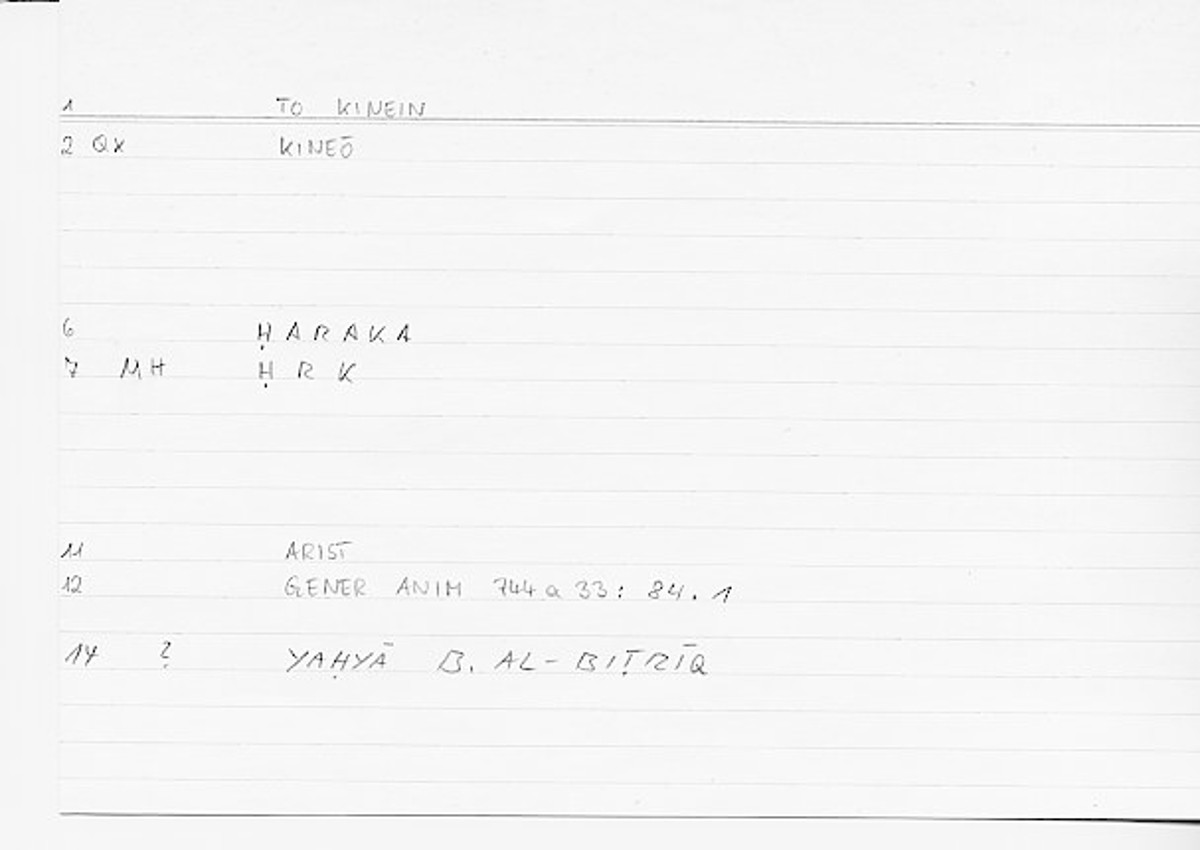 1 TO KINEIN
2 QX KINEŌ
6 ḤARAKA
7 MH ḤRK
11 ARIST
12 GENER ANIM 744a33: 84.1
14 ? YAḤYĀ B. AL-BIṬRĪQ